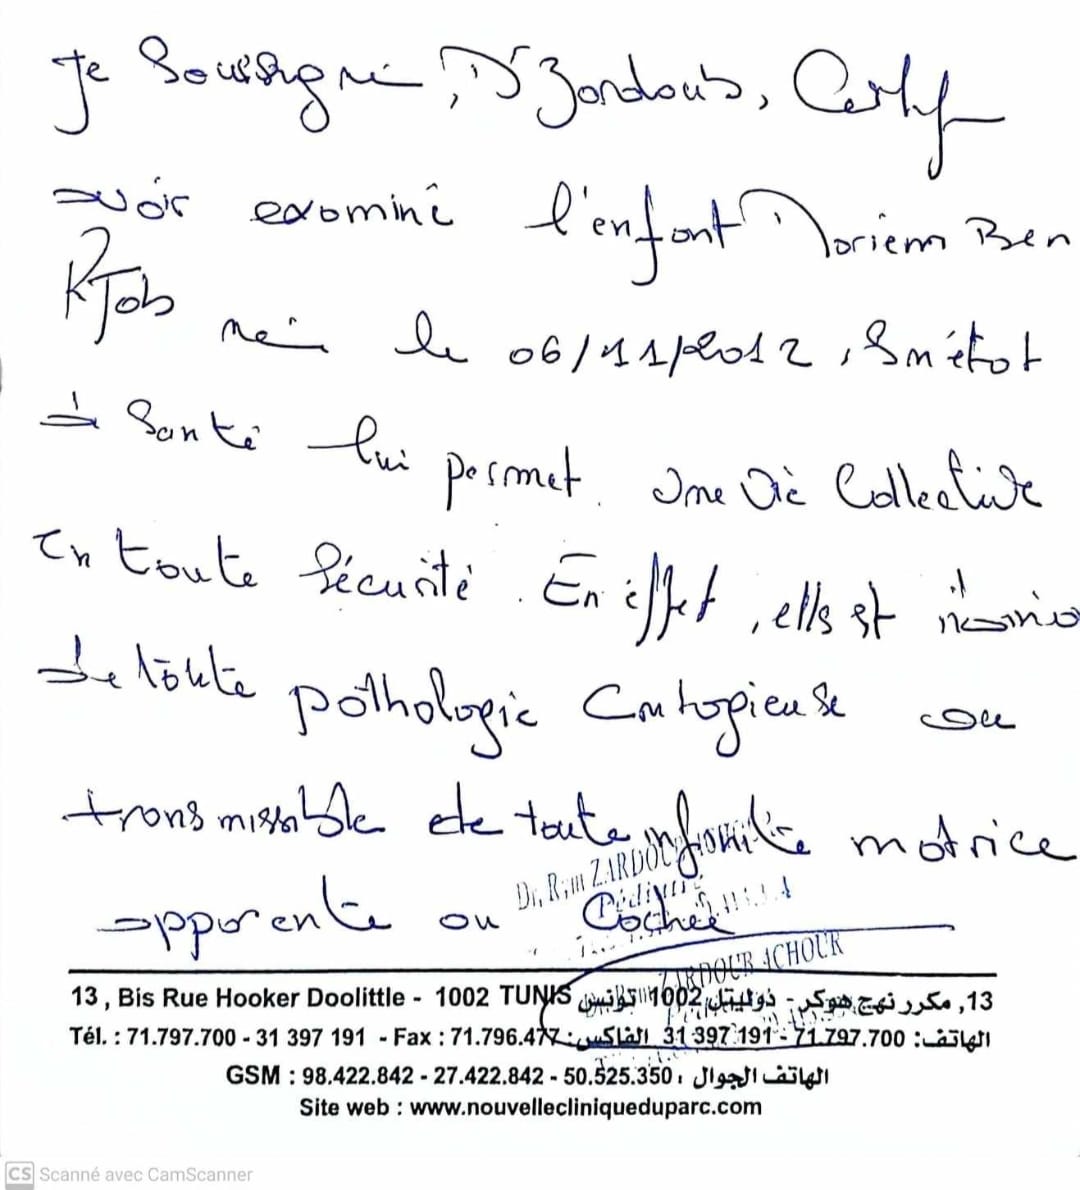 Je Soussigné, Dr Zardoub, Certifie
avoir examiné l'enfant Mariem Ben
Ktab née le 06/11/2012, Son état
de Santé lui permet une vie Collective
En toute Sécurité. En effet, elle est
de toute pathologie Contagieuse ou
transmissible et de toute infirmité motrice
apparente ou Cachée
Dr. Rim ZARDOU
ZARDOUR ACHOUR
13, Bis Rue Hooker Doolittle - 1002 TUNIS 13, مكرر نهج هوكر - ذوليتل 1002 تونس
Tél. : 71.797.700 - 31 397 191 - Fax : 71.796.477 الهاتف: 71.797.700 - 31 397 191 الفاكس:
GSM : 98.422.842 - 27.422.842 - 50.525.350 : الهاتف الجوال
Site web : www.nouvellecliniqueduparc.com
CS Scanné avec CamScanner